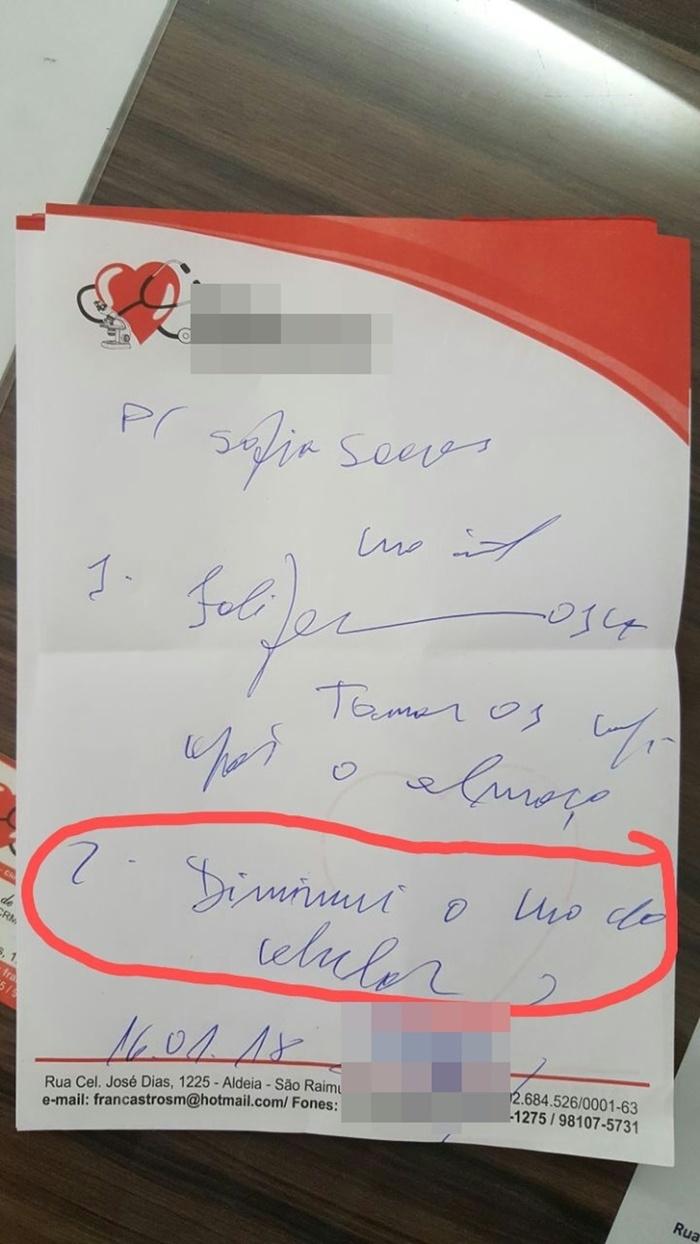 P/ Sofia Soares
Uso int
1. Folifer 01 cx
Tomar 01 cp
após o almoço
2. Diminuir o uso do
celular
16.01.18
Rua Cel. José Dias, 1225 - Aldeia - São Raimu
02.684.526/0001-63
e-mail: francastrosm@hotmail.com/ Fones:
-1275 / 98107-5731
de
CRM
Rua